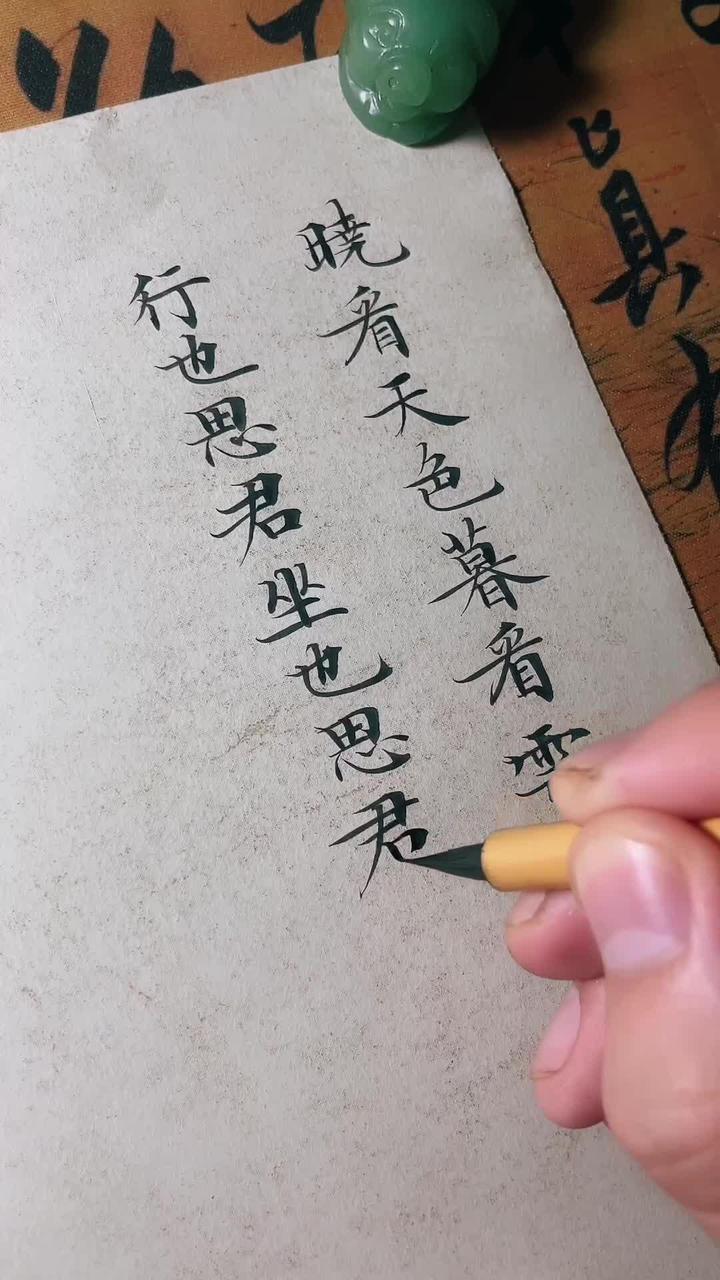 曉看天色暮看雲
行也思君坐也思君
眞